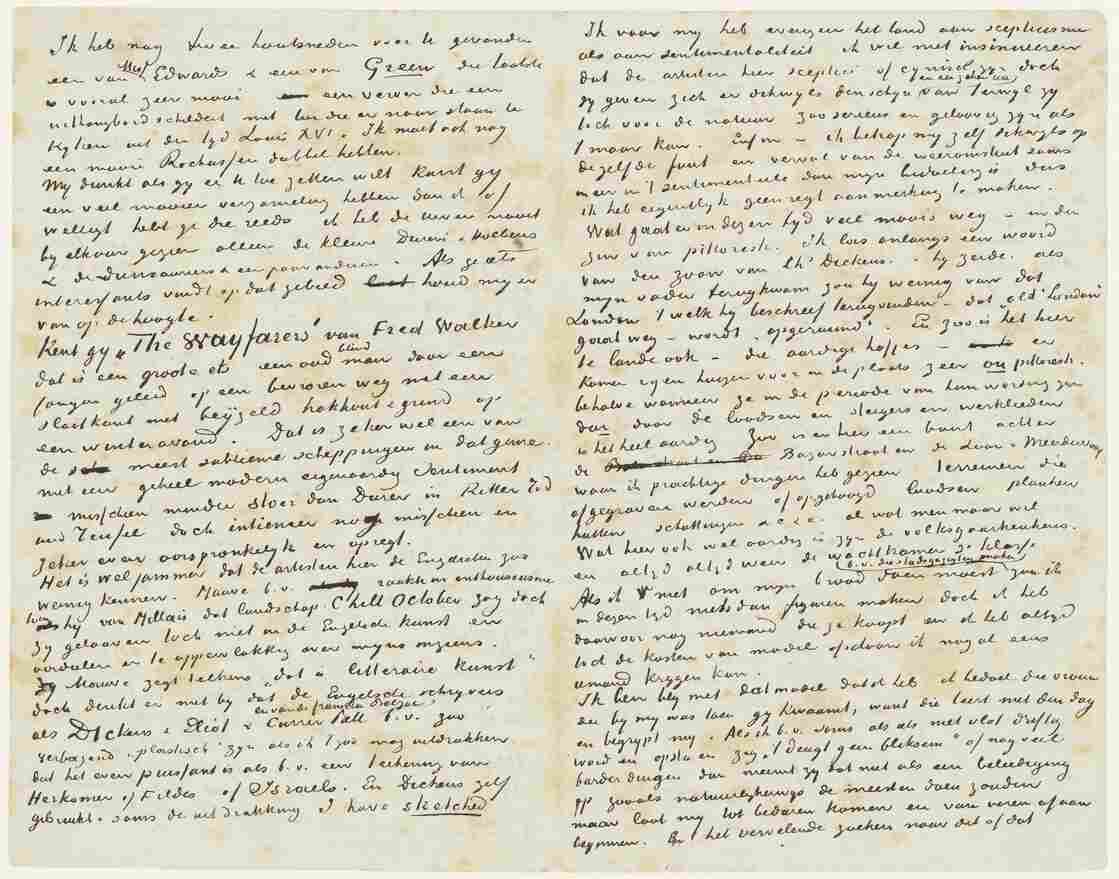 Ik heb nog twee houtsneden voor U gevonden
een van Miss Edwards & een van Green die laatste
is vooral zeer mooi een verver die een
uithangbord schildert met lui die er naar staan te
kijken uit den tijd Louis XVI. Ik moet ook nog
een mooie Rochussen dubbel hebben.
My dunkt als gy er U toe zetten wilt kunt gy
een veel mooier verzameling hebben dan ik of
welligt hebt ge die reeds ik heb de uwen nooit
by elkaar gezien alleen de kleine Durers & Holbeins
& de Dumauriers & een paar anderen. Als ge iets
interessants vindt op dat gebied houd my er
van op de hoogte.
Kent gy „The Wayfarers” van Fred Walker
dat is een groote ets een oud blind man door een
jongen geleid op een bevroren weg met een
slootkant met beijzeld hakhout & grind op
een winteravond. Dat is zeker wel een van
de meest sublieme scheppingen in dat genre.
met een geheel modern eigenaardig sentiment
misschien minder stoer dan Durer in Ritter Tod
und Teufel doch intiemer nog misschien en
zeker even oorspronkelyk en opregt.
Het is wel jammer dat de artisten hier de Engelschen zoo
weinig kennen. Mauve b.v. raakte in enthousiasme
toen hy van Millais dat landschap Chill October zag doch
zy gelooven toch niet in de Engelsche kunst en
oordeelen er te oppervlakkig over myns inziens.
Mauve zegt telkens „dat is litteraire kunst”
doch denkt er niet by dat de Engelsche schryvers
en van de fransche Balzac
als Dickens & Eliot & Currer Bell b.v. zoo
verbazend „plastisch” zyn als ik 't zoo mag uitdrukken
dat het even puissant is als b.v. een teekening van
Herkomer of Fildes of Israels. En Dickens zelf
gebruikt soms de uitdrukking I have sketched
Ik voor my heb evenzeer het land aan scepticisme
als aan sentimentaliteit ik wil niet insinueeren
dat de artisten hier sceptisch of cynisch zyn doch
zy geven zich er dikwyls den schyn van terwyl zy
toch voor de natuur zoo serieus en geloovig zyn als
't maar kan. Enfin – ik betrap my zelf dikwyls op
dezelfde fout en verval van de weeromstuit soms
meer in 't sentimenteele dan myn bedoeling is dus
ik heb eigenlyk geen regt aanmerking te maken.
Wat gaat er in dezen tyd veel moois weg – in den
zin van pittoresk. Ik las onlangs een woord
van den zoon van Ch's Dickens. hy zeide als
myn vader terugkwam zou hy weinig van dat
London 't welk hy beschreef terugvinden – dat „old London”
gaat weg – wordt „opgeruimd”. En zoo is het hier
te lande ook – die aardige hofjes – er
komen ryen huizen voor in de plaats zeer onpittoresk.
behalve wanneer ze in de periode van hun wording zyn
dan door de loodsen en steigers en werklieden
is het heel aardig Zoo is er hier een buurt achter
de Bazarstraat en de Laan v. Meerdervoort
waar ik prachtige dingen heb gezien. Terreinen die
afgegraven werden of opgehoogd loodsen planken
hutten schuttingen &c &c. al wat men maar wil
Wat hier ook wel aardig is zyn de volksgaarkeukens.
en altyd altyd weer de wachtkamer 3e klasse
Als ik niet om myn brood doen moest zou ik
in dezen tyd niets dan figuren maken doch ik heb
daarvoor nog niemand die ze koopt en ik heb altyd
toch de kosten van model ofschoon ik nog al eens
iemand krygen kan.
Ik ben bly met het model dat ik heb ik bedoel die vrouw
die by my was toen gy kwaamt, want die leert met den dag
en begrypt my. Als ik b.v. soms als als 't niet vlot driftig
word en opsta en zeg „'t deugt geen bliksem” of nog veel
harder dingen dan neemt zy dat niet als een beleediging
op zooals natuurlykerwys de meesten doen zouden
maar laat my tot bedaren komen en van voren af aan
beginnen. En het vervelende zoeken naar dit of dat